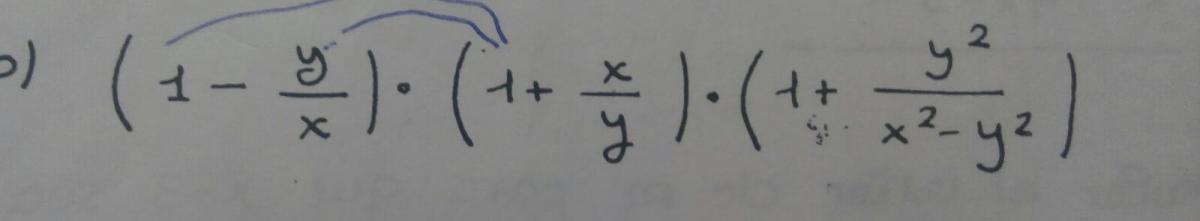 b) (1 - y/x) · (1 + x/y) · (1 + y²/(x² - y²))